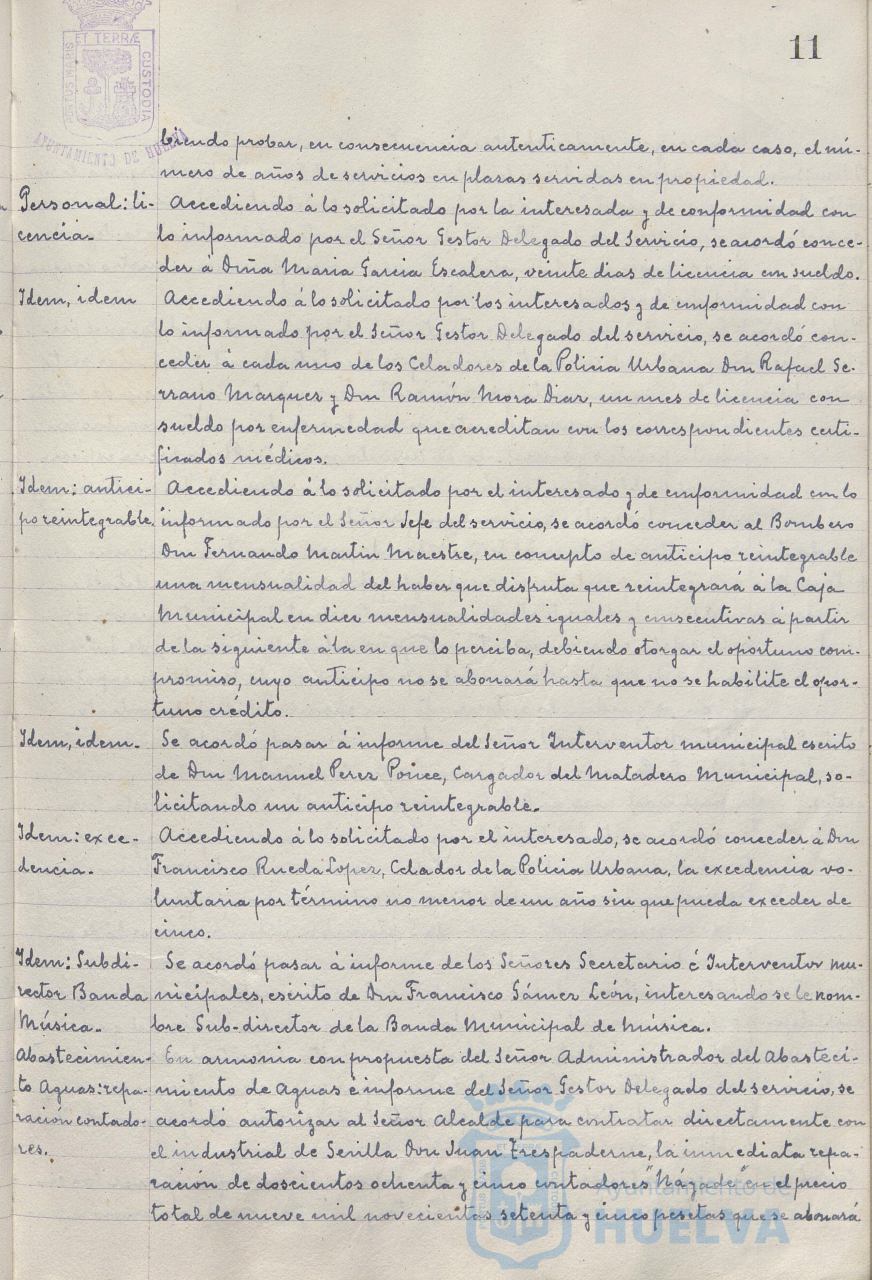 11
PORTUS MARIS ET TERRÆ CUSTODIA
AYUNTAMIENTO DE HUELVA
biendo probar, en consecuencia autenticamente, en cada caso, el nú-
mero de años de servicios en plazas servidas en propiedad.
Personal: li-
cencia.-
Accediendo á lo solicitado por la interesada y de conformidad con
lo informado por el Señor Gestor Delegado del Servicio, se acordó conce-
der á Doña Maria Garcia Escalera, veinte dias de licencia con sueldo.
Idem, idem
Accediendo á lo solicitado por los interesados y de conformidad con
lo informado por el Señor Gestor Delegado del servicio, se acordó con-
ceder á cada uno de los Celadores de la Policia Urbana Don Rafael Se-
rrano Marquez y Don Ramón Mora Diaz, un mes de licencia con
sueldo por enfermedad que acreditan con los correspondientes certi-
ficados médicos.
Idem: antici-
po reintegrable
Accediendo á lo solicitado por el interesado y de conformidad con lo
informado por el Señor Jefe del servicio, se acordó conceder al Bombero
Don Fernando Martin Maestre, en concepto de anticipo reintegrable
una mensualidad del haber que disfruta que reintegrará á la Caja
Municipal en diez mensualidades iguales y consecutivas á partir
de la siguiente á la en que lo perciba, debiendo otorgar el oportuno com-
promiso, cuyo anticipo no se abonará hasta que no se habilite el opor-
tuno crédito.
Idem, idem.-
Se acordó pasar á informe del Señor Interventor municipal escrito
de Don Manuel Perez Ponce, Cargador del Matadero Municipal, so-
licitando un anticipo reintegrable.-
Idem: exce-
dencia.-
Accediendo á lo solicitado por el interesado, se acordó conceder á Don
Francisco Rueda Lopez, Celador de la Policia Urbana, la excedencia vo-
luntaria por término no menor de un año sin que pueda exceder de
cinco.
Idem: Subdi-
rector Banda
Música.-
Se acordó pasar á informe de los Señores Secretario é Interventor mu-
nicipales, escrito de Don Francisco Gámez León, interesando se le nom-
bre Sub-director de la Banda Municipal de Música.
Abastecimien-
to Aguas: repa-
ración contado-
res.
En armonia con propuesta del Señor Administrador del Abasteci-
miento de Aguas é informe del Señor Gestor Delegado del servicio, se
acordó autorizar al Señor Alcalde para contratar directamente con
el industrial de Sevilla Don Juan Trespaderne, la inmediata repa-
ración de doscientos ochenta y cinco contadores "Náyade" en el precio
total de nueve mil novecientos setenta y cinco pesetas que se abonará
Ayuntamiento de
HUELVA